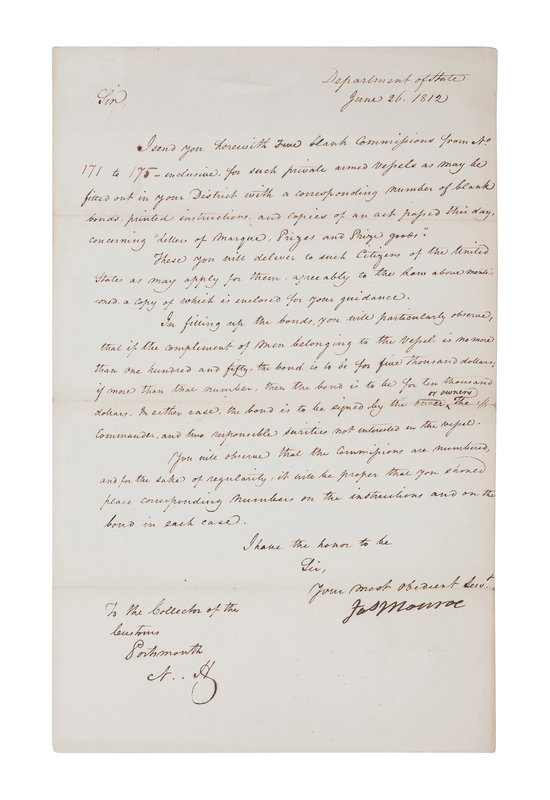 Department of State
June 26. 1812
Sir,
I send you herewith Five blank Commissions from No
171 to 175 – inclusive, for such private armed vessels as may be
fitted out in your District with a corresponding number of blank
bonds, printed instructions, and copies of an act passed this day,
concerning "Letters of Marque, Prizes and Prize goods."
These you will deliver to such Citizens of the United
States as may apply for them, agreeably to the Law above mentio-
ned, a copy of which is enclosed for your guidance.
In filling up the bonds, you will particularly observe,
that if the complement of men belonging to the vessel is no more
than one hundred and fifty, the bond is to be for five thousand dollars;
if more than that number, then the bond is to be for ten thousand
or owners
dollars. In either case, the bond is to be signed by the owner, the
Commander, and two responsible sureties not interested in the vessel.
You will observe that the Commissions are numbered,
and for the sake of regularity, it will be proper that you should
place corresponding numbers on the instructions and on the
bond in each case.
I have the honor to be
Sir,
Your most obedient Servt.
Jas Monroe
To the Collector of the
Customs
Portsmouth
N. H